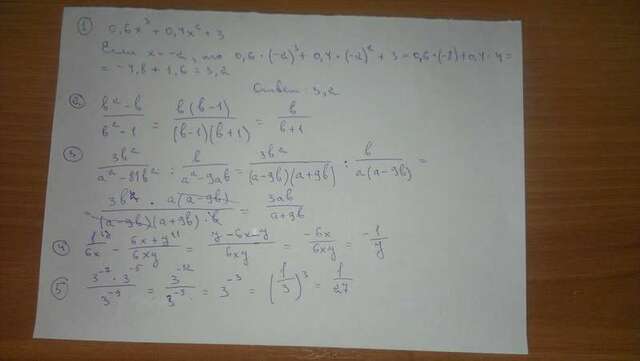 ① 0,6x³ + 0,4x² + 3
Если x = -2, то 0,6 · (-2)³ + 0,4 · (-2)² + 3 = 0,6 · (-8) + 0,4 · 4 =
= -4,8 + 1,6 = 3,2
Ответ: 3,2
② (b² - b)/(b² - 1) = b(b-1)/((b-1)(b+1)) = b/(b+1)
③ 3b²/(a² - 81b²) : b/(a² - 9ab) = 3b²/((a-9b)(a+9b)) : b/(a(a-9b)) =
= 3b² · a(a-9b)/((a-9b)(a+9b) · b) = 3ab/(a+9b)
④ 1/6x - (6x + y)/6xy = (y - 6x - y)/6xy = -6x/6xy = -1/y
⑤ 3⁻⁷ · 3⁻⁵/3⁻⁹ = 3⁻¹²/3⁻⁹ = 3⁻³ = (1/3)³ = 1/27